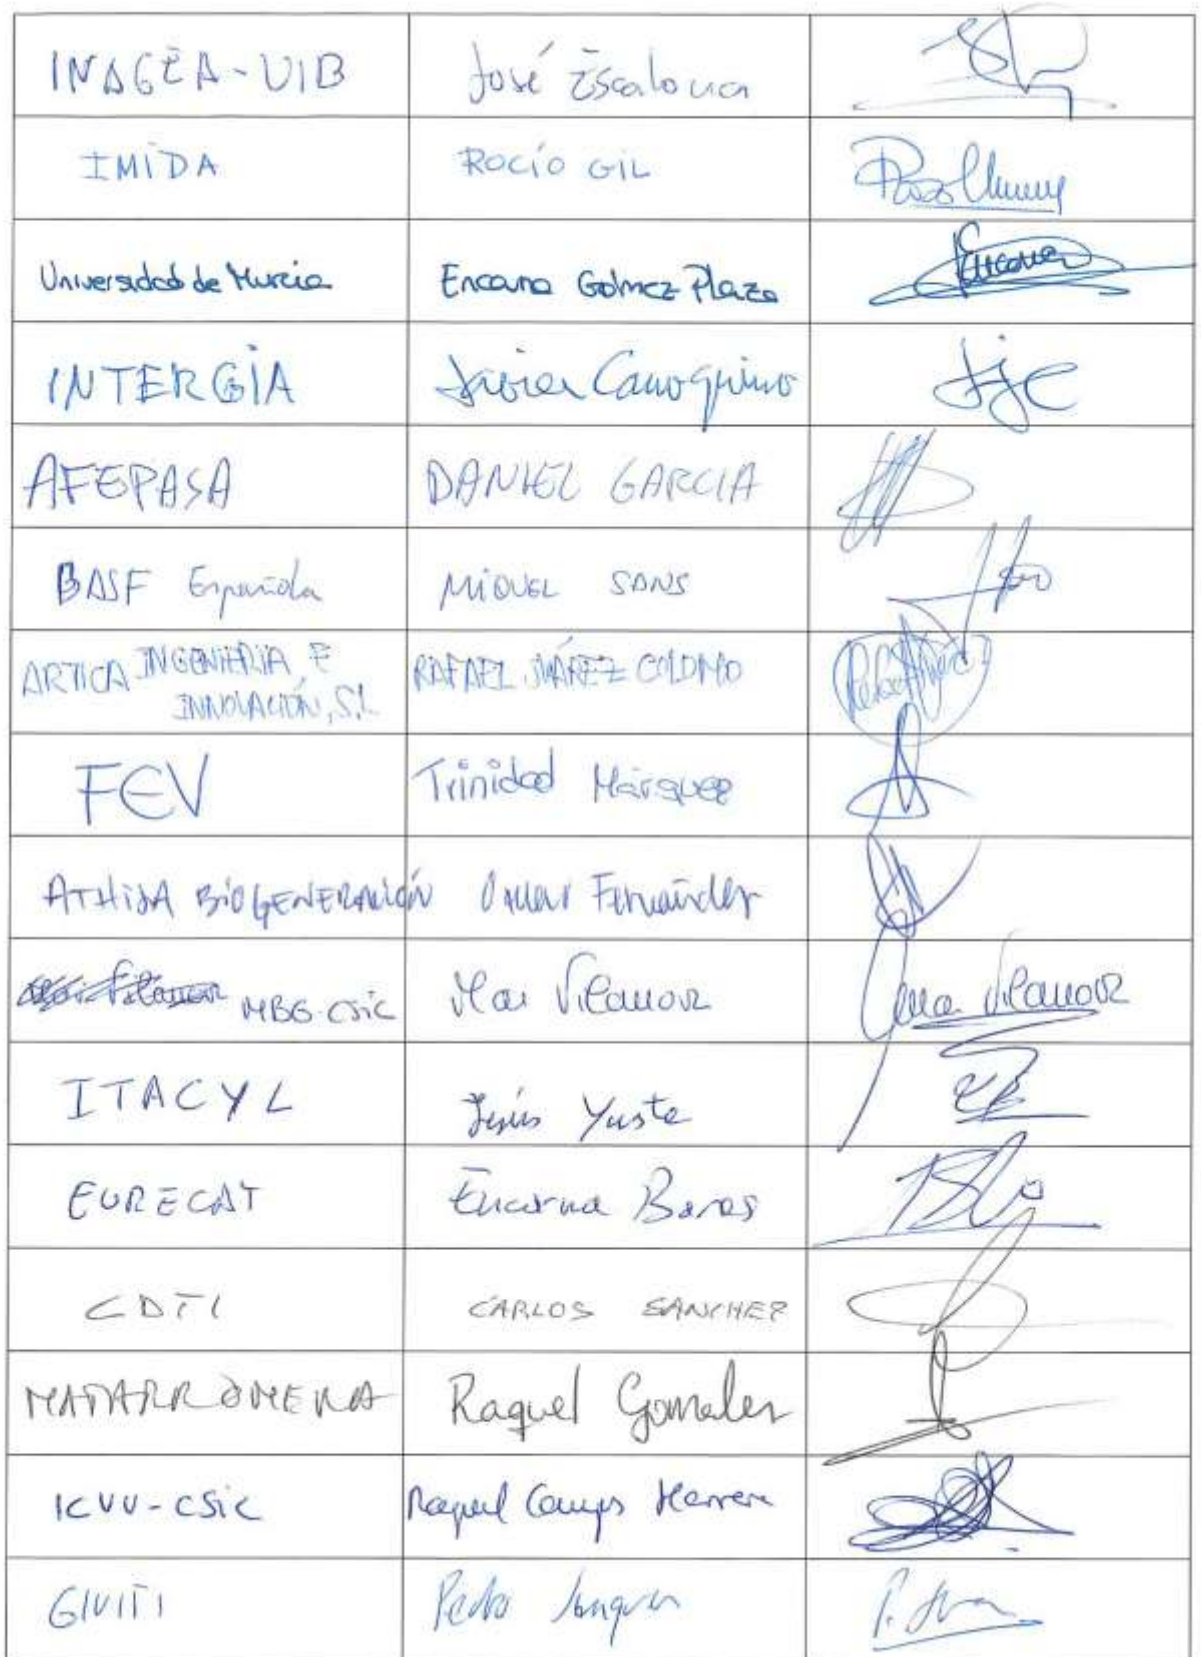 INAGEA-UIB José Escalona
IMIDA ROCÍO GIL
Universidad de Murcia Encarna Gómez Plaza
INTERGIA Javier Canoquino
AFEPASA DANIEL GARCIA
BASF Española MIQUEL SANS
ARTICA INGENIERIA E
INNOVACIÓN, S.L. RAFAEL JUÁREZ COLOMO
FEV Trinidad Márquez
ATHISA BIOGENERACIÓN Omar Fernández
MBG-CSIC Mar Vilanova Mar Vilanova
ITACYL Jesús Yuste
EURECAT Encarna Baras
CDTI CARLOS SANCHEZ
MATARROMERA Raquel González
ICVV-CSIC Raquel Campos Herrera
GIVITI Pedro